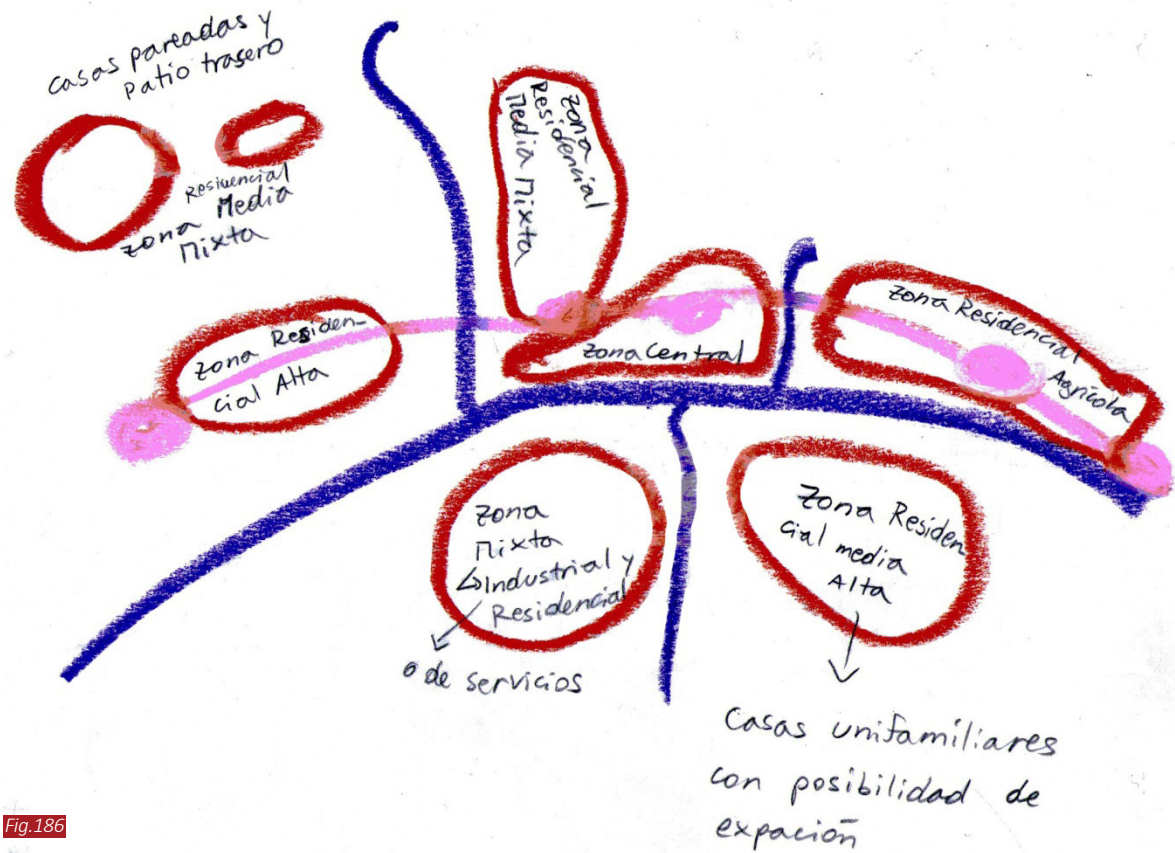 casas pareadas y
patio trasero
Residencial
zona Media
Mixta
zona
Residencial
Media Mixta
zona Residen-
cial Alta
zona Central
zona Residencial
Agrícola
zona
Mixta
↳Industrial y
Residencial
o de servicios
Zona Residen
cial media
Alta
Casas unifamiliares
con posibilidad de
expación
Fig.186